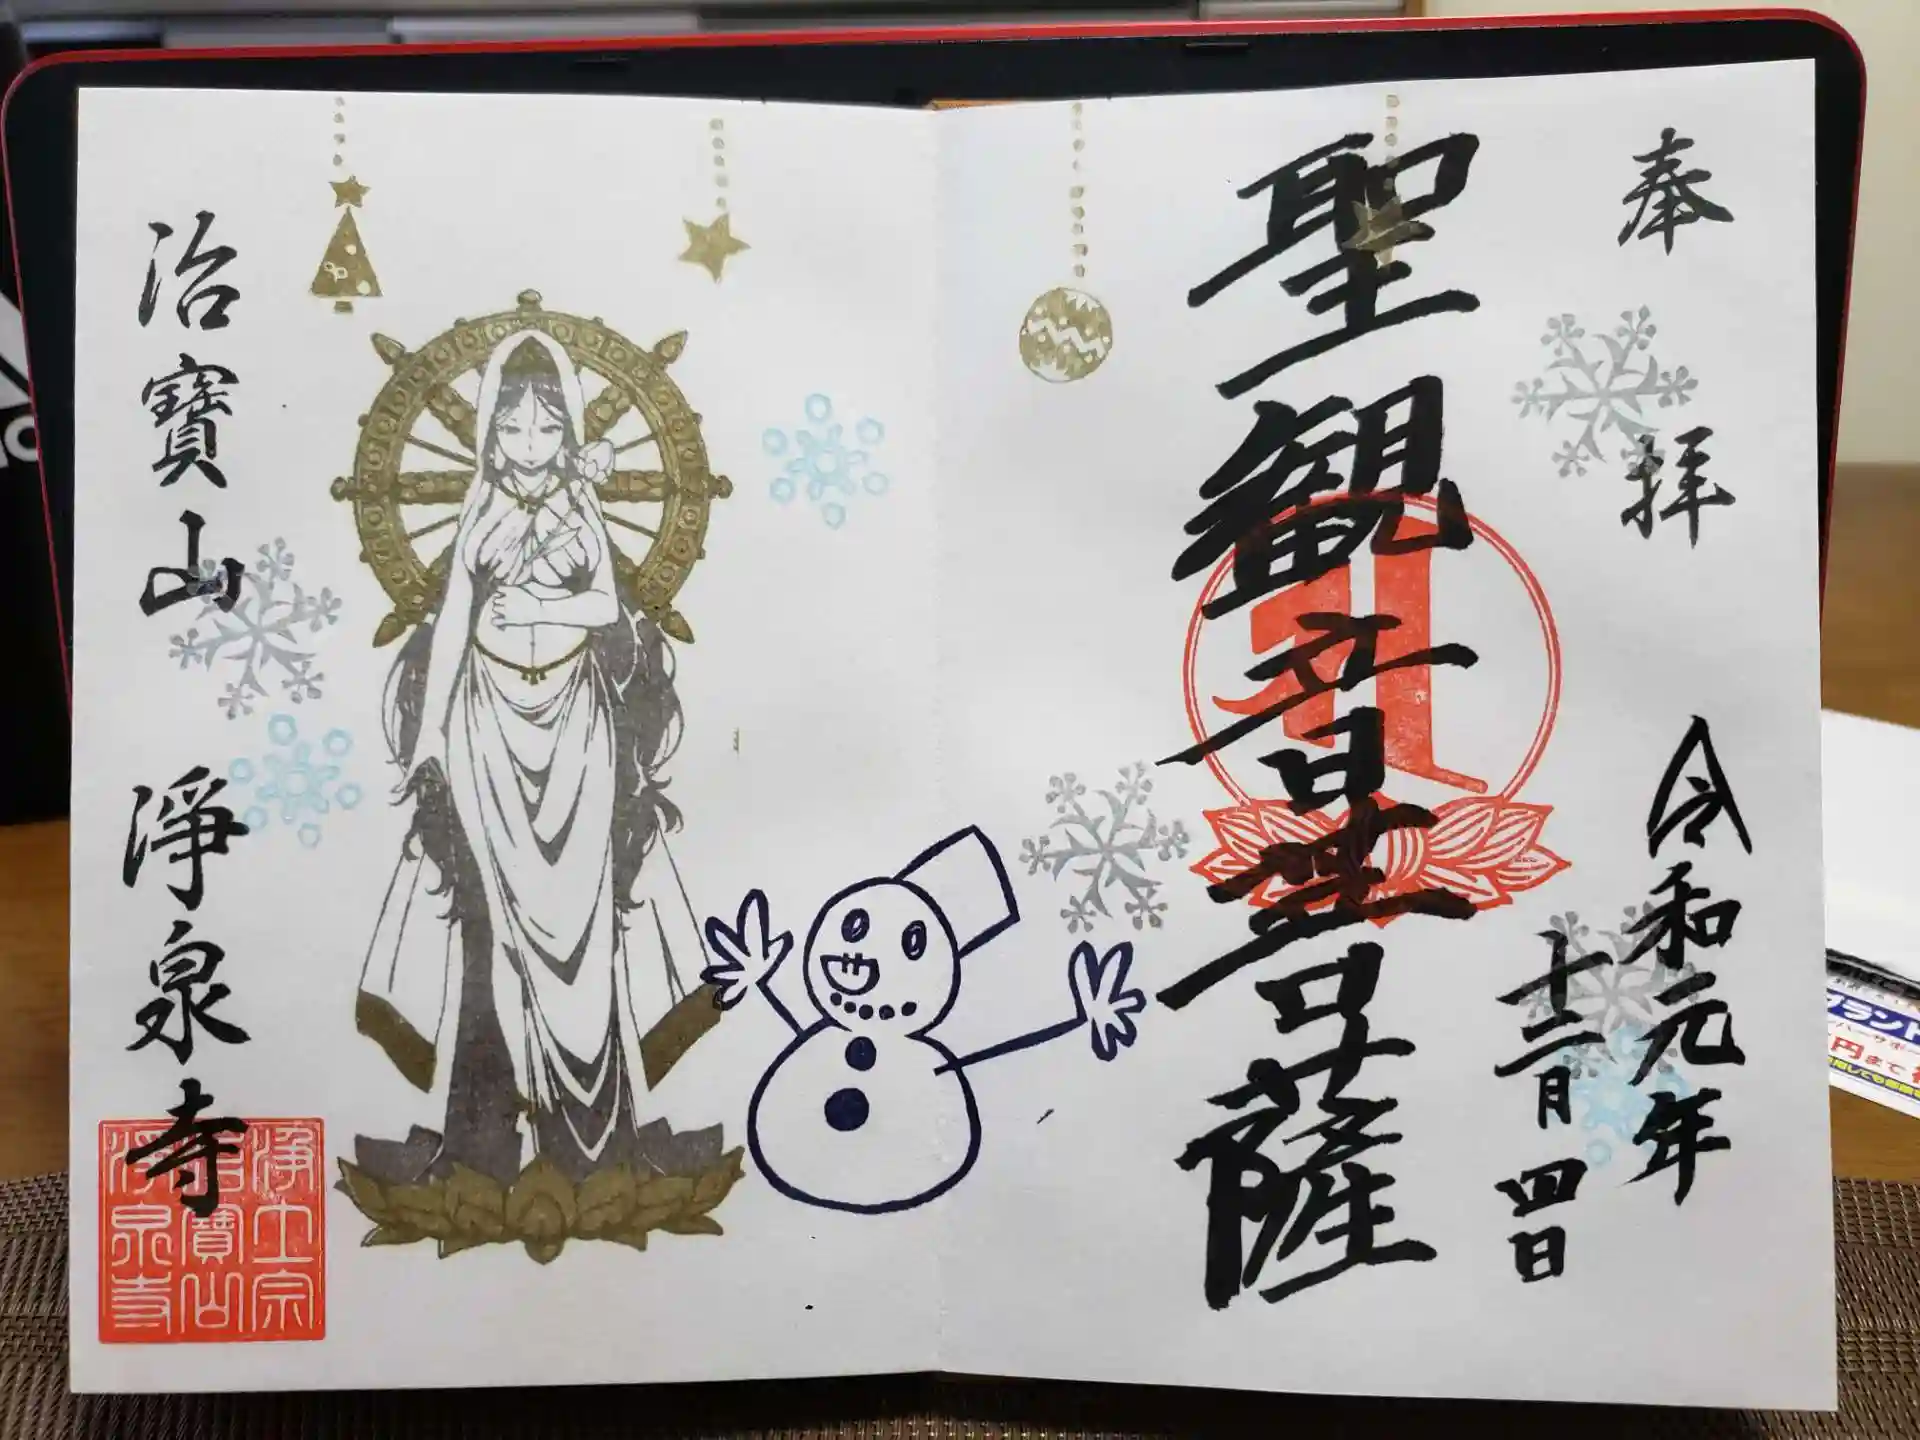 奉拝
令和元年
十二月四日
聖観音菩薩
治寶山
淨泉寺
浄土宗
治寶山
浄泉寺
円まで